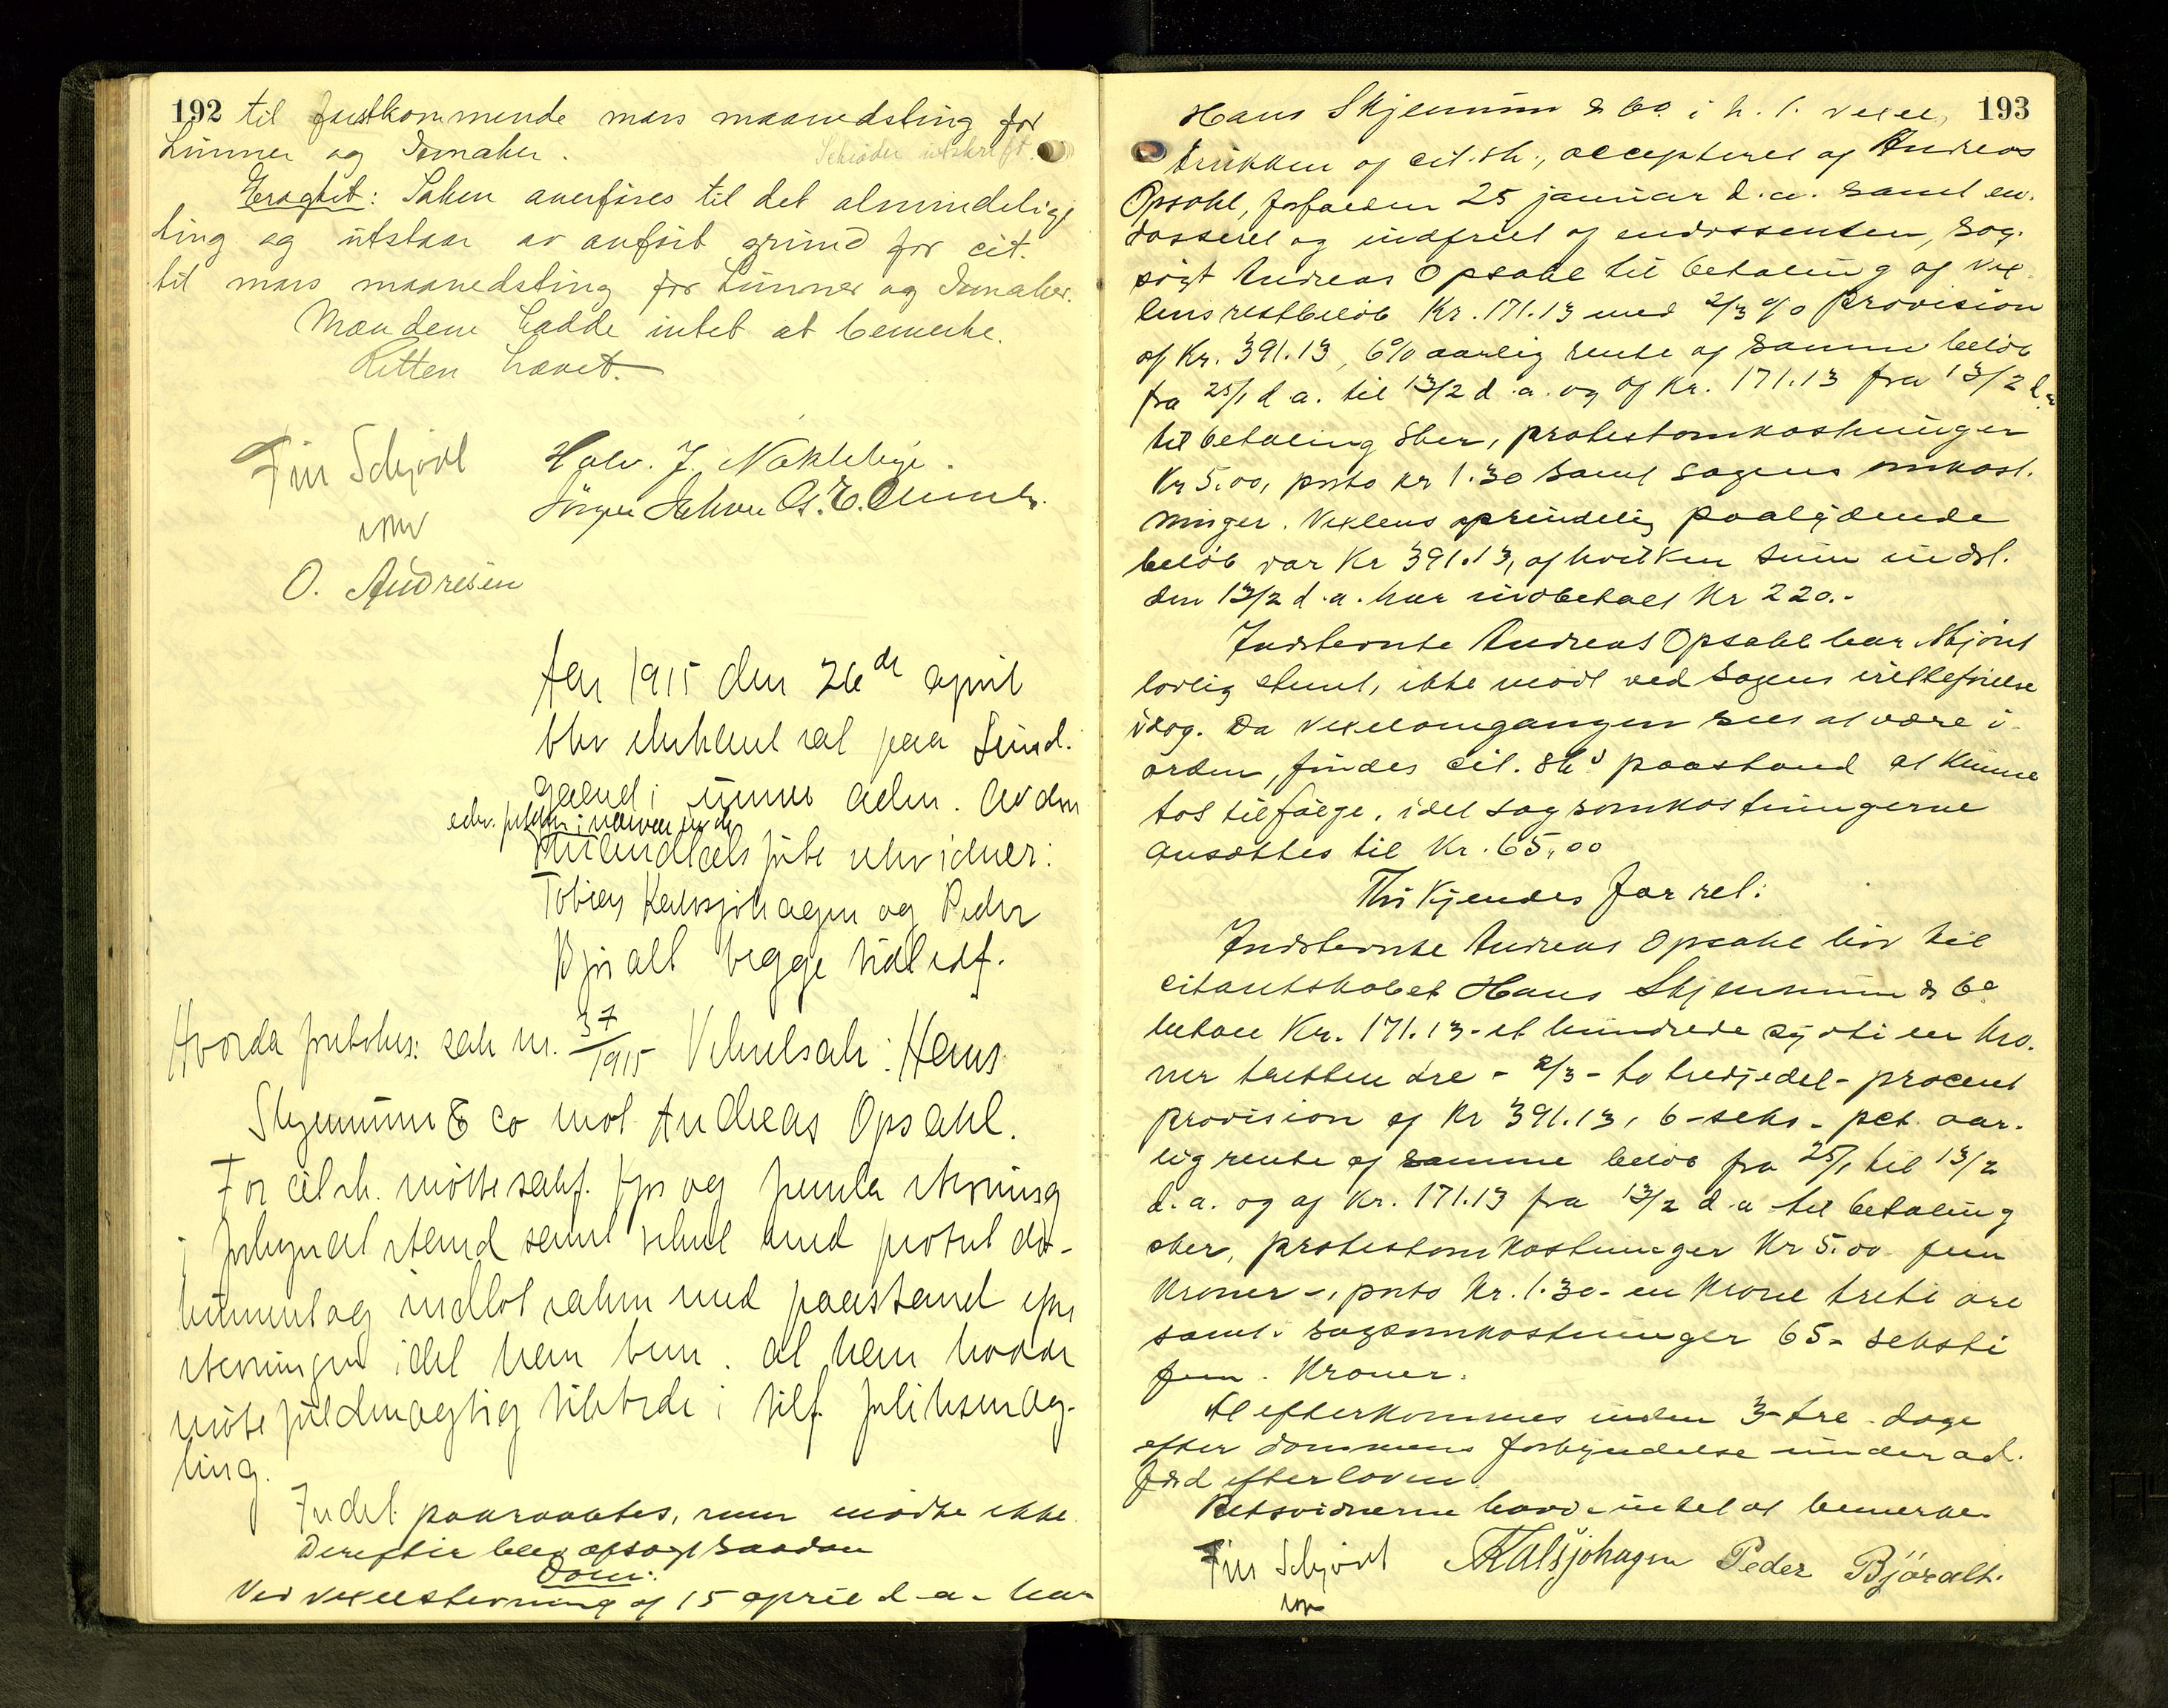 192
til førstkommende mars maanedsting for
Lunner og Jevnaker.
Schiøder utskrift.
Eragtet: Saken overføres til det almindelige
ting og utstaar av anført grund for cit.
til mars maanedsting for Lunner og Jevnaker.
Mændene hadde intet at bemerke.
Retten hævet.
Finn Schjødt
Halv. J. Naklebye.
Jörgen Johan
O. Andresen
Aar 1915 den 26de april
blev ekstraret sat paa Sund-
gaard i
edv. protokol:
retsvidner:
Tobias Kalvsjøhagen og Peder
Bjøralt begge tidl edf.
Hvorda foretokes: sak nr. 37/1915 Vekselsak: Hans
Skjennum & Co mot Andreas Opsahl.
For cit.sk. møtte sakf. og fremla stevning
i forkyndt stand samt veksel med protest do-
kument og indlot saken med paastand efter
stevningen idet han bem. at han hadde
møtt fuldmægtig tilstede i tilf. forliksmæg-
ling.
Indst. paaraabtes, men mødte ikke.
Derefter blev afsagt saadan
Dom:
Ved vexelstevning af 15 april d.a. har
193
Hans Skjennum & Co. i h. t. vexel,
trukken af cit.sk., accepteret af Andreas
Opsahl, forfalden 25 januar d.a. samt en-
dosseret og indfriet af endossenten, sag-
søgt Andreas Opsahl til betaling af vex-
lens restbeløb Kr. 171.13 med 2/3 % provision
af Kr. 391.13, 6% aarlig rente af samme beløb
fra 25/1 d.a. til 13/2 d.a. og af Kr. 171.13 fra 13/2 d.a.
til betaling sker, protestomkostninger
Kr 5.00, porto kr 1.30 samt sagens omkost-
ninger. Vexlens oprindelig paalydende
beløb var Kr 391.13, af hvilken sum indst.
den 13/2 d.a. har indbetalt Kr 220.-
Indstevnte Andreas Opsahl har skjønt
lovlig stevnt, ikke mødt ved sagens iretteførelse
idag. Da vexelomgangen sees at være i
orden, findes cit. sks paastand at kunne
tas tilfølge, idet sagsomkostningerne
ansættes til Kr. 65,00
Thi kjendes for ret:
Indstevnte Andreas Opsahl bør til
citantskabet Hans Skjennum & Co
betale Kr. 171.13 - et hundrede sytti en kro-
ner tretten øre - 2/3 - to tredjedel - procent
provision af Kr 391.13, 6 - seks - pct. aar-
lig rente af samme beløb fra 25/1 til 13/2
d.a. og af Kr. 171.13 fra 13/2 d.a. til betaling
sker, protestomkostninger Kr 5.00 fem
kroner -, porto Kr. 1.30 - en krone treti øre
samt i sagsomkostninger 65 - seksti
fem - Kroner.
At efterkommes inden 3 - tre - dage
efter dommens forkyndelse under ad-
færd efter loven.
Retsvidnerne havde intet at bemerke.
Finn Schjødt
TKalsjöhagen
Peder Björalt.